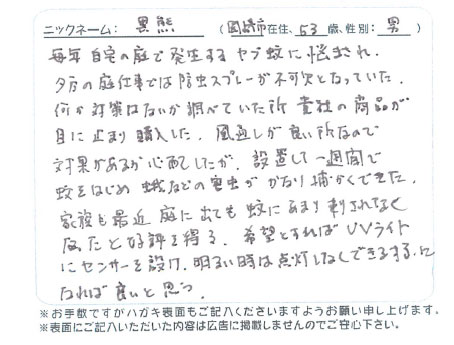 ニックネーム: 黒熊 (岡崎市在住、53歳、性別:男)
毎年自宅の庭で発生するヤブ蚊に悩まされ、
夕方の庭仕事では防虫スプレーが不可欠となっていた。
何か対策はないか調べていた所 貴社の商品が
目に止まり購入した。風通しが良い所なので
対果があるが心配したが、設置して一週間で
蚊をはじめ 蛾などの害虫が かなり捕かくできた。
家族も最近 庭に出ても 蚊にあまり刺されなく
なったと好評を得る。希望とすれば UVライト
にセンサーを設け、明るい時は点灯しなくできる
なれば良いと思う。
※お手数ですがハガキ表面もご記入くださいますようお願い申し上げます。
※表面にご記入いただいた内容は広告に掲載しませんのでご安心下さい。